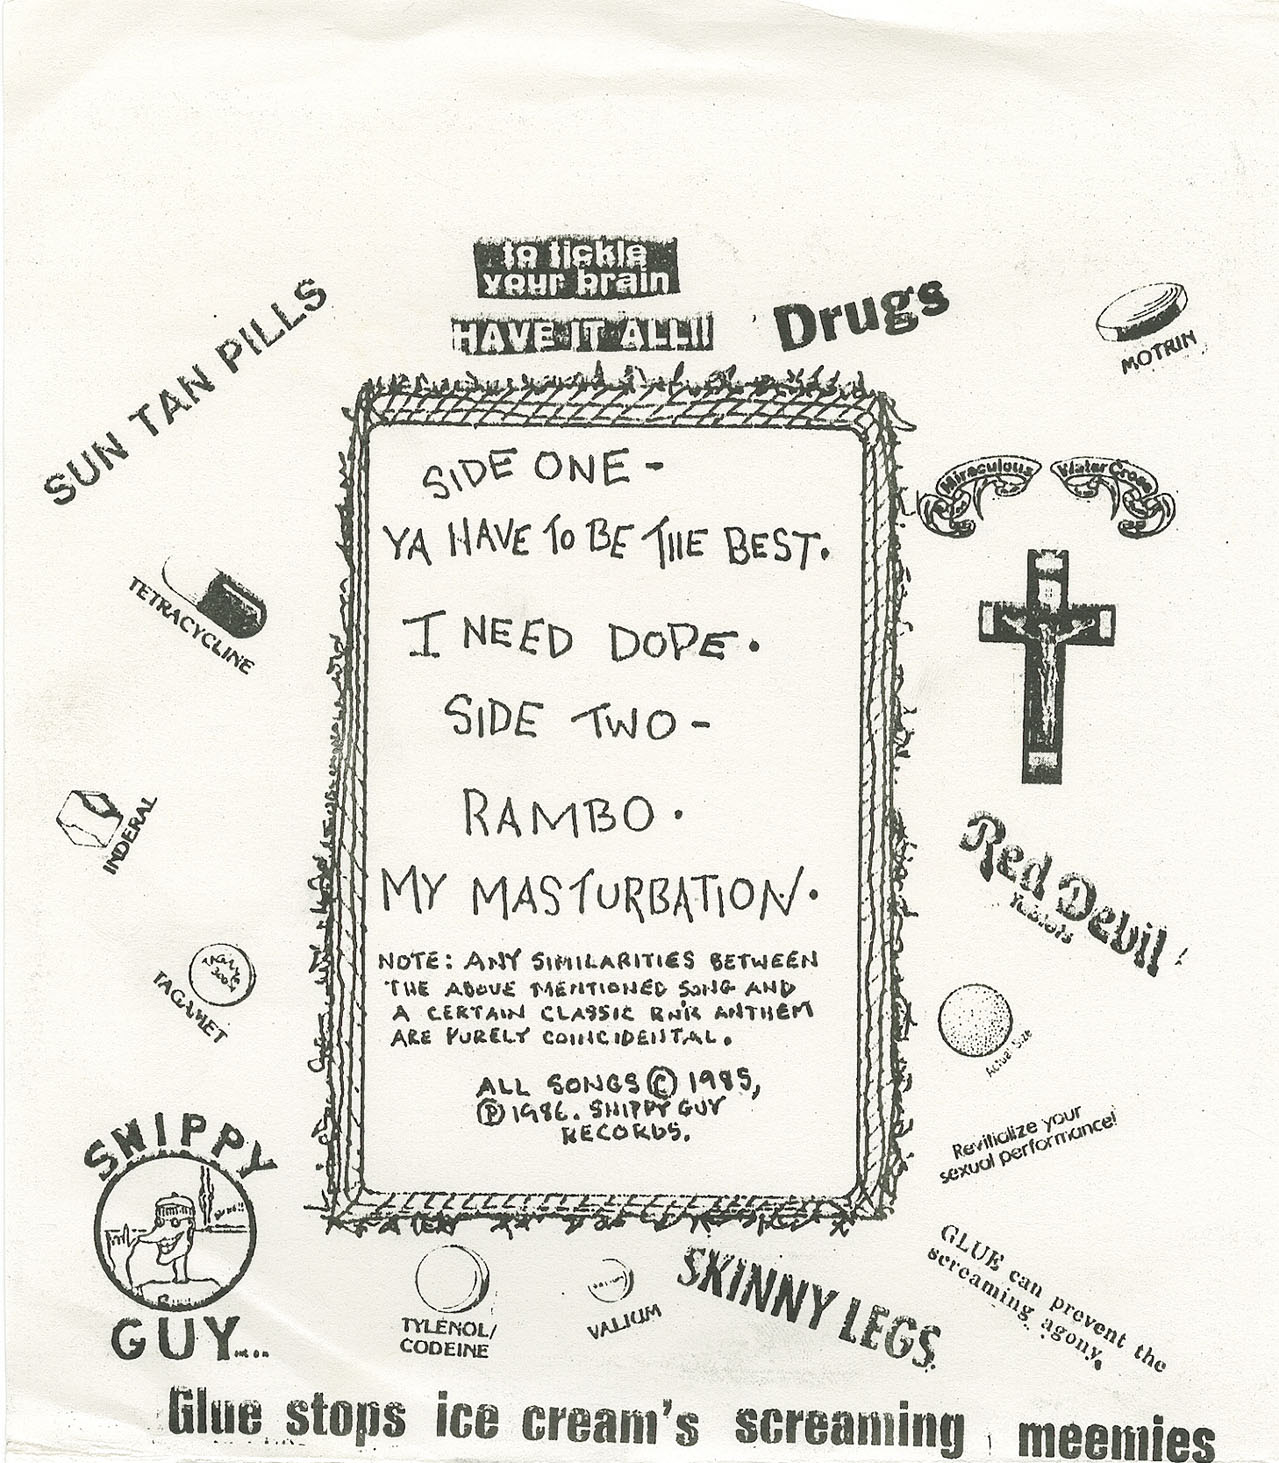 to tickle
your brain
HAVE IT ALL!!
Drugs
MOTRIN
SUN TAN PILLS
Miraculous Water Cross
SIDE ONE -
YA HAVE TO BE THE BEST.
TETRACYCLINE
I NEED DOPE.
SIDE TWO -
RAMBO.
INDERAL
Red Devil
Tablets
MY MASTURBATION.
NOTE: ANY SIMILARITIES BETWEEN
THE ABOVE MENTIONED SONG AND
A CERTAIN CLASSIC RN'R ANTHEM
ARE PURELY COINCIDENTAL.
TAGAMET
300
TAGAMET
Actual Size
ALL SONGS © 1985,
℗ 1986. SHIPPY GUY
RECORDS.
Revitialize your
sexual performance!
SHIPPY
GUY
INC.
TYLENOL/
CODEINE
VALIUM
SKINNY LEGS.
GLUE can prevent the
screaming agony.
Glue stops ice cream's screaming meemies